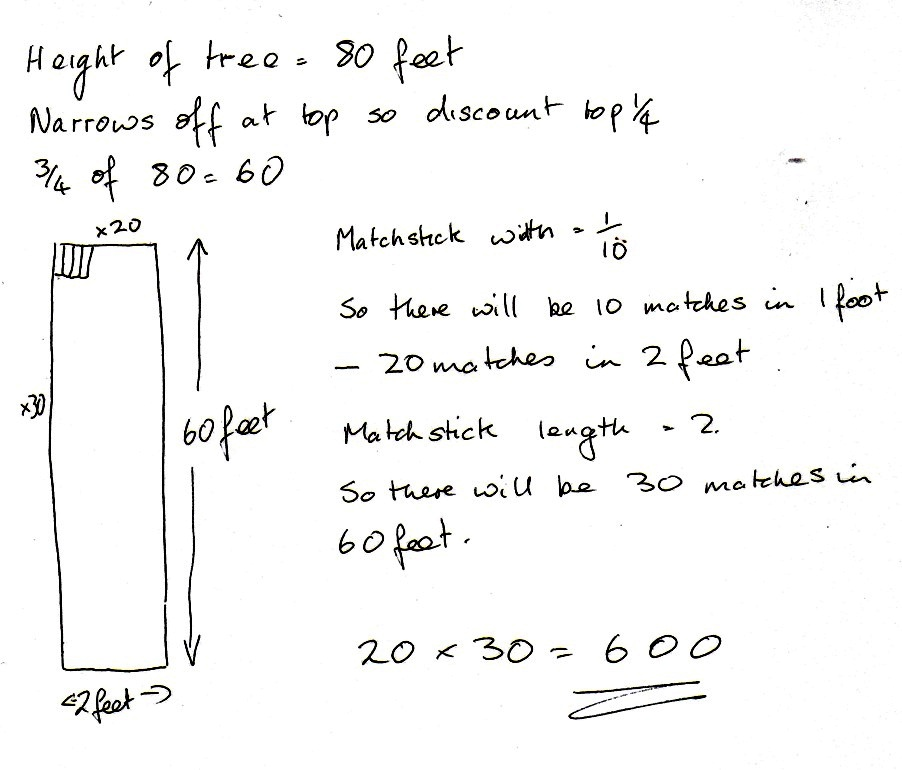 Height of tree = 80 feet
Narrows off at top so discount top 1/4
3/4 of 80 = 60
x20
Matchstick width = 1/10
So there will be 10 matches in 1 foot
– 20 matches in 2 feet
x30
60 feet
Matchstick length = 2.
So there will be 30 matches in
60 feet.
20 x 30 = 600
<2 feet →